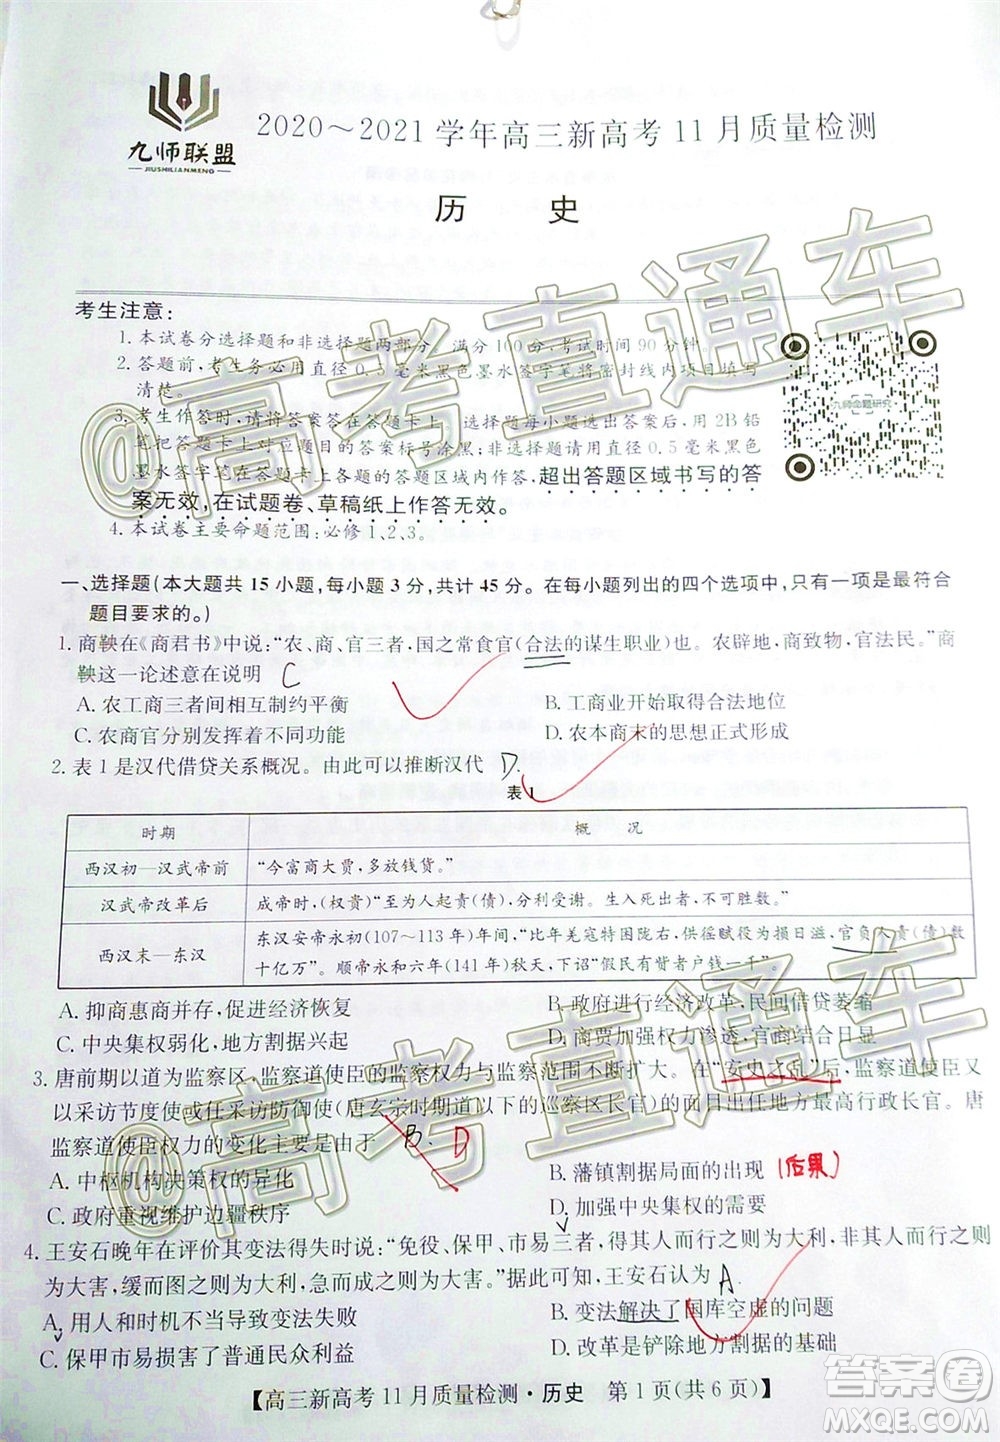 九师联盟
JIUSHILIANMENG
2020～2021学年高三新高考11月质量检测
历 史
考生注意：
1. 本试卷分选择题和非选择题两部分。满分100分，考试时间90分钟。
2. 答题前，考生务必用直径0.5毫米黑色墨水签字笔将密封线内项目填写
清楚。
3. 考生作答时，请将答案答在答题卡上。选择题每小题选出答案后，用2B铅
笔把答题卡上对应题目的答案标号涂黑；非选择题请用直径0.5毫米黑色
墨水签字笔在答题卡上各题的答题区域内作答，超出答题区域书写的答
案无效，在试题卷、草稿纸上作答无效。
4. 本试卷主要命题范围：必修1、2、3。
九师命题研究
@高考直通车
一、选择题(本大题共15小题，每小题3分，共计45分。在每小题列出的四个选项中，只有一项是最符合
题目要求的。)
1. 商鞅在《商君书》中说：“农、商、官三者，国之常食官(合法的谋生职业)也。农辟地，商致物，官法民。”商
鞅这一论述意在说明 C
A. 农工商三者间相互制约平衡 B. 工商业开始取得合法地位
C. 农商官分别发挥着不同功能 D. 农本商末的思想正式形成
2. 表1是汉代借贷关系概况。由此可以推断汉代 D.
表1
时期 概 况
西汉初—汉武帝前 “今富商大贾，多放钱货。”
汉武帝改革后 成帝时，(权贵)“至为人起责(债)，分利受谢。”未到期已死者，不可胜数。”
西汉末—东汉 东汉安帝永初(107～113年)年间，“比年羌寇特困陇右，供徭赋役为损日滋，官负人责(债)数
十亿万”。顺帝永和六年(141年)秋天，下诏“假民有赀者户钱一千”。
A. 抑商惠商并存，促进经济恢复 B. 政府进行经济改革，民间借贷萎缩
C. 中央集权弱化，地方割据兴起 D. 商贾加强权力渗透，官商结合日显
3. 唐前期以道为监察区，监察道使臣的监察权力与范围不断扩大。在“安史之乱”后，监察道使臣又
以采访节度使或采访防御使(唐玄宗时期道以下的巡察区长官)的面目出任地方最高行政长官。唐
监察道使臣权力的变化主要是由于 B. D
A. 中枢机构决策权的异化 B. 藩镇割据局面的出现(后果)
C. 政府重视维护边疆秩序 D. 加强中央集权的需要
4. 王安石晚年在评价其变法得失时说：“免役、保甲、市易三者，得其人而行之则为大利，非其人而行之则
为大害，缓而图之则为大利，急而成之则为大害。”据此可知，王安石认为 A.
A. 用人和时机不当导致变法失败 B. 变法解决了国库空虚的问题
C. 保甲市易损害了普通民众利益 D. 改革是铲除地方割据的基础
【高三新高考11月质量检测·历史 第1页(共6页)】
@高考直通车
答案圈
MXQE.COM